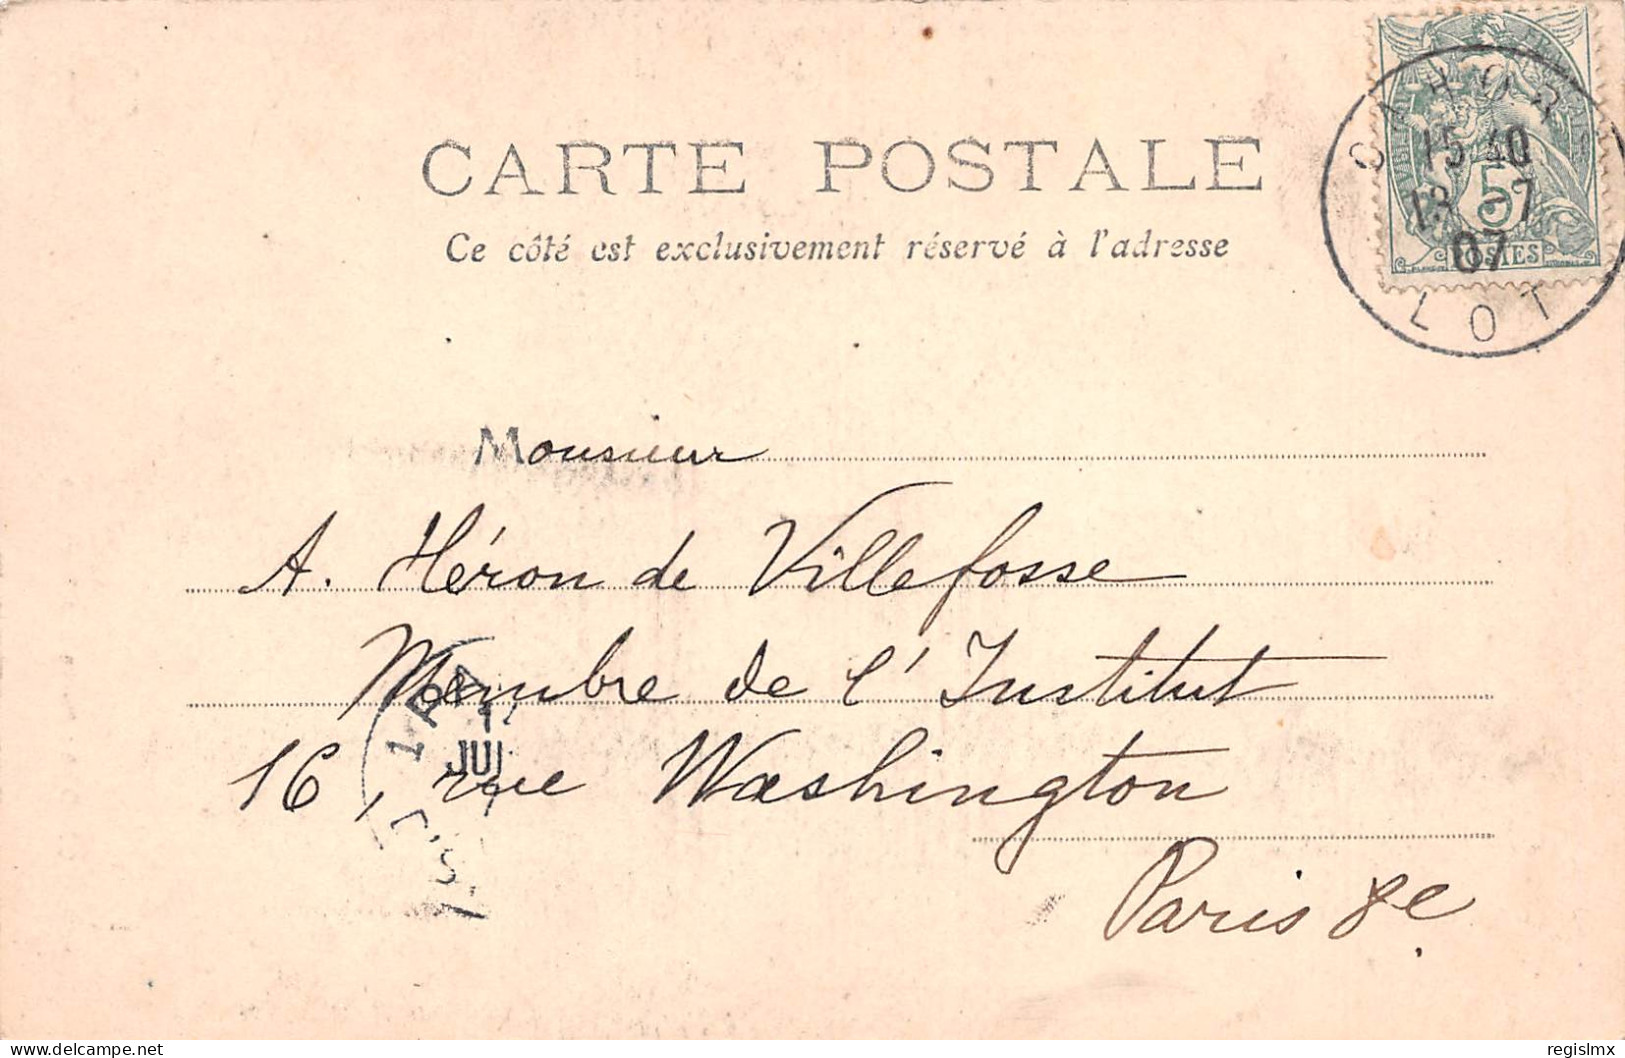 CARTE POSTALE
Ce côté est exclusivement réservé à l'adresse
CAHORS
15 40
13 -7
07
LOT
5
POSTES
Monsieur
A. Héron de Villefosse
Membre de l'Institut
16, rue Washington
Paris 8e
JUI
regislmx
delcampe.net